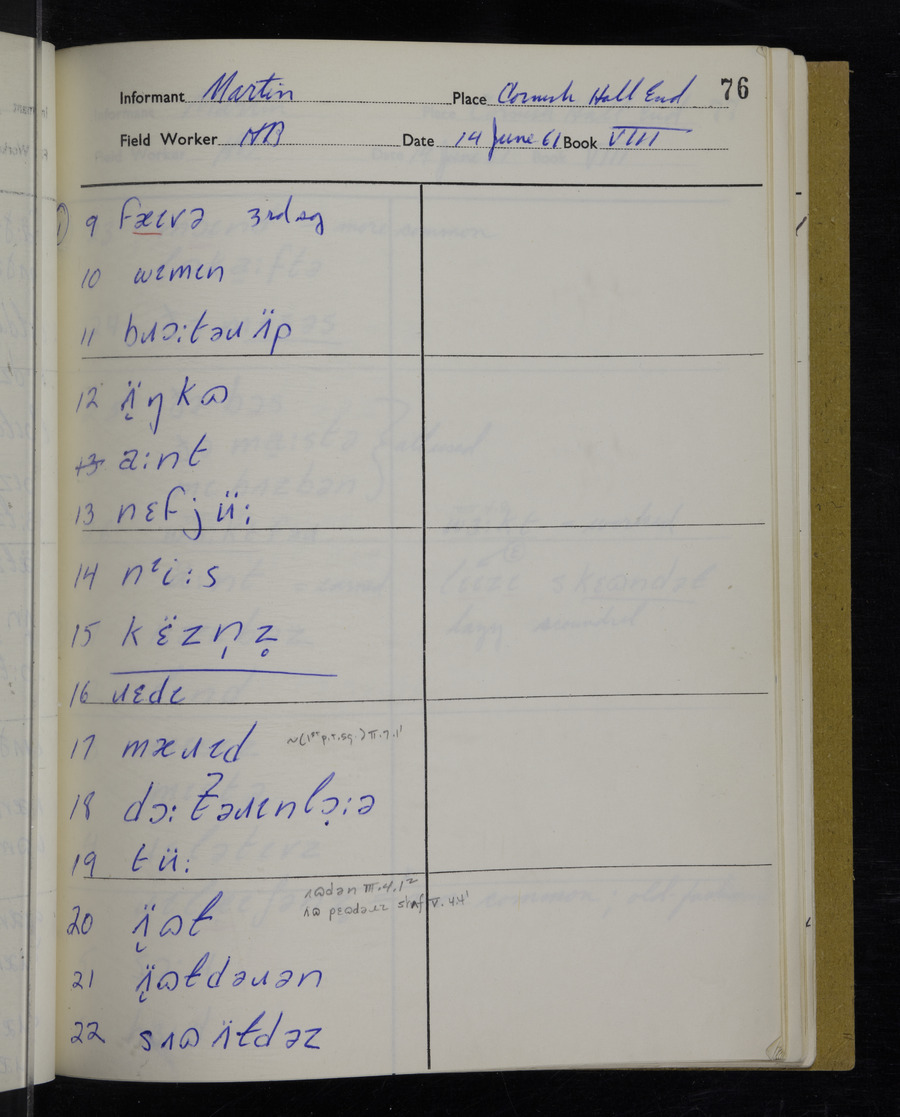 Informant Martin Place Cornish Hall End 76
Field Worker NB Date 14 June 61 Book VIII
① 9 fæɪvə 3rd sg
10 wɪmɛn
11 bɹɔ:təɹ ʌ̈p
12 ʌ̯̈ŋkɷ
13 a:nt
13 nɛfjü:
14 nᶦi:s
15 kɛ̈zn̩z̥
16 ɹɛdɪ
17 mæɹɪd ~(1st p.t.sg.) VI.7.1
18 dɔ:t̵əɹɪnlɔ̣:ə
19 tü:
ʌɷdən III.4.1²
20 ʌ̯̈ɷt
21 ʌ̯̈ɷtdəɹən
22 sʌɷ ʌ̈tdəz